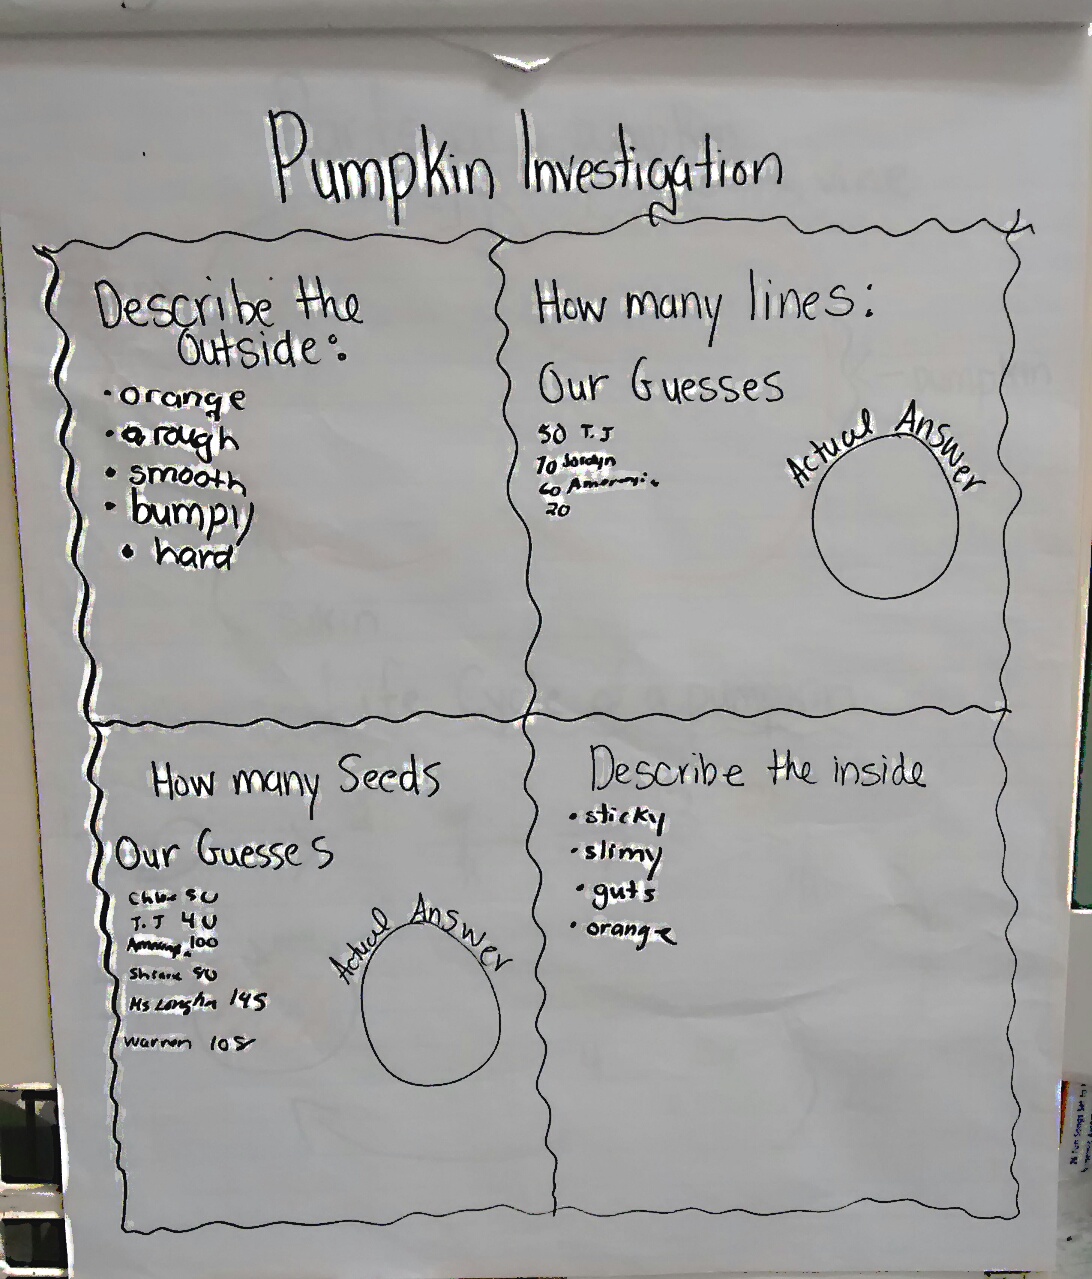 Pumpkin Investigation
Describe the
Outside:
• orange
• rough
• smooth
• bumpy
• hard
How many lines:
Our Guesses
50 T.J
70 Jordyn
60
20
Actual Answer
How many Seeds
Our Guesses
Chloe 50
T.J 40
100
50
Ms 145
Warren 105
Actual Answer
Describe the inside
• sticky
• slimy
• guts
• orange